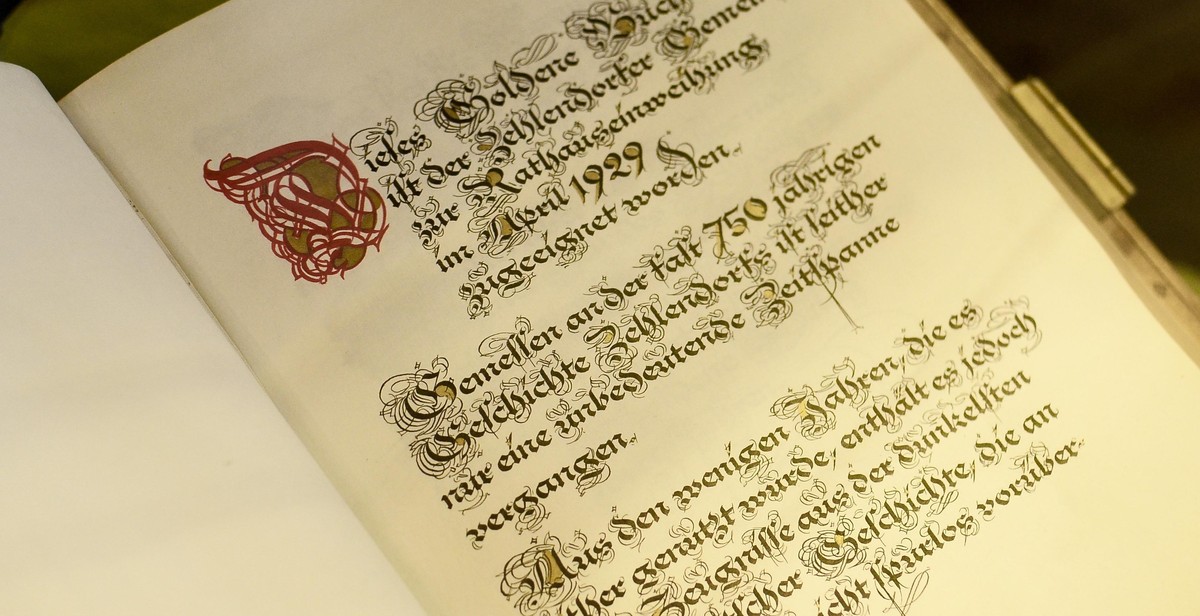 Dieses Goldene Buch
ist der Zehlendorfer
zur Rathauseinweihung
im April 1929
zugeeignet worden.
Gemessen an der fast 750 jährigen
Geschichte Zehlendorfs ist seither
nur eine unbedeutende Zeitspanne
vergangen.
Aus den wenigen Jahren, die es
genutzt wurde, enthält es jedoch
Zeugnisse aus der dunkelsten
Geschichte, die an
spurlos vorüber